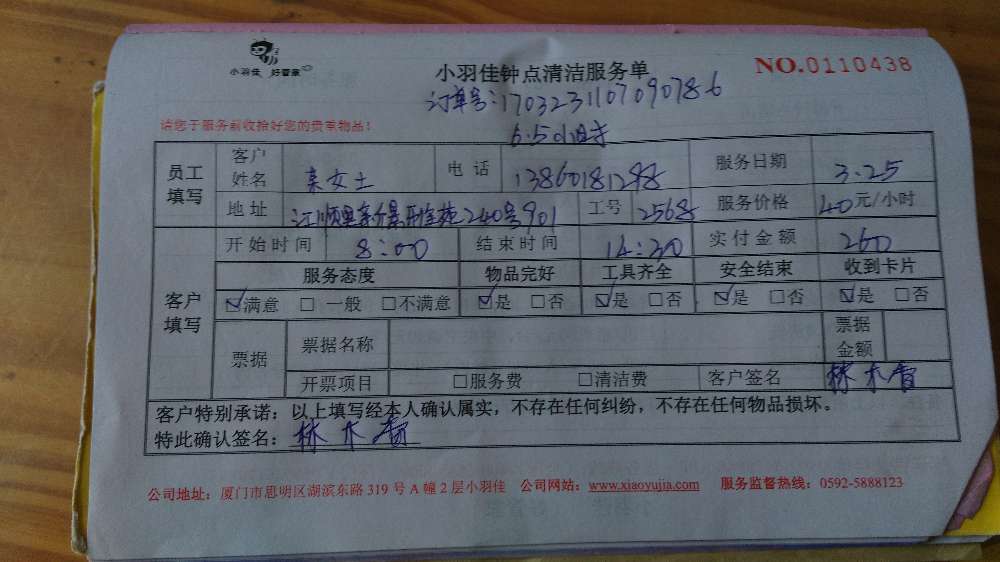 小羽佳 好管家
小羽佳钟点清洁服务单
NO.0110438
订单号:170323110709078-6
请您于服务前收拾好您的贵重物品!
6.5小时
员工填写 客户姓名 女士 电话 13860181298 服务日期 3.25
地址 240号901 工号 2568 服务价格 40元/小时
开始时间 8:00 结束时间 14:30 实付金额 260
客户填写 服务态度 物品完好 工具齐全 安全结束 收到卡片
☑满意 □一般 □不满意 ☑是 □否 ☑是 □否 ☑是 □否 ☑是 □否
票据 票据名称 票据金额
开票项目 □服务费 □清洁费 客户签名 林木
客户特别承诺:以上填写经本人确认属实,不存在任何纠纷,不存在任何物品损坏。
特此确认签名: 林木
公司地址:厦门市思明区湖滨东路 319 号 A 幢 2 层小羽佳 公司网站:www.xiaoyujia.com 服务监督热线:0592-5888123